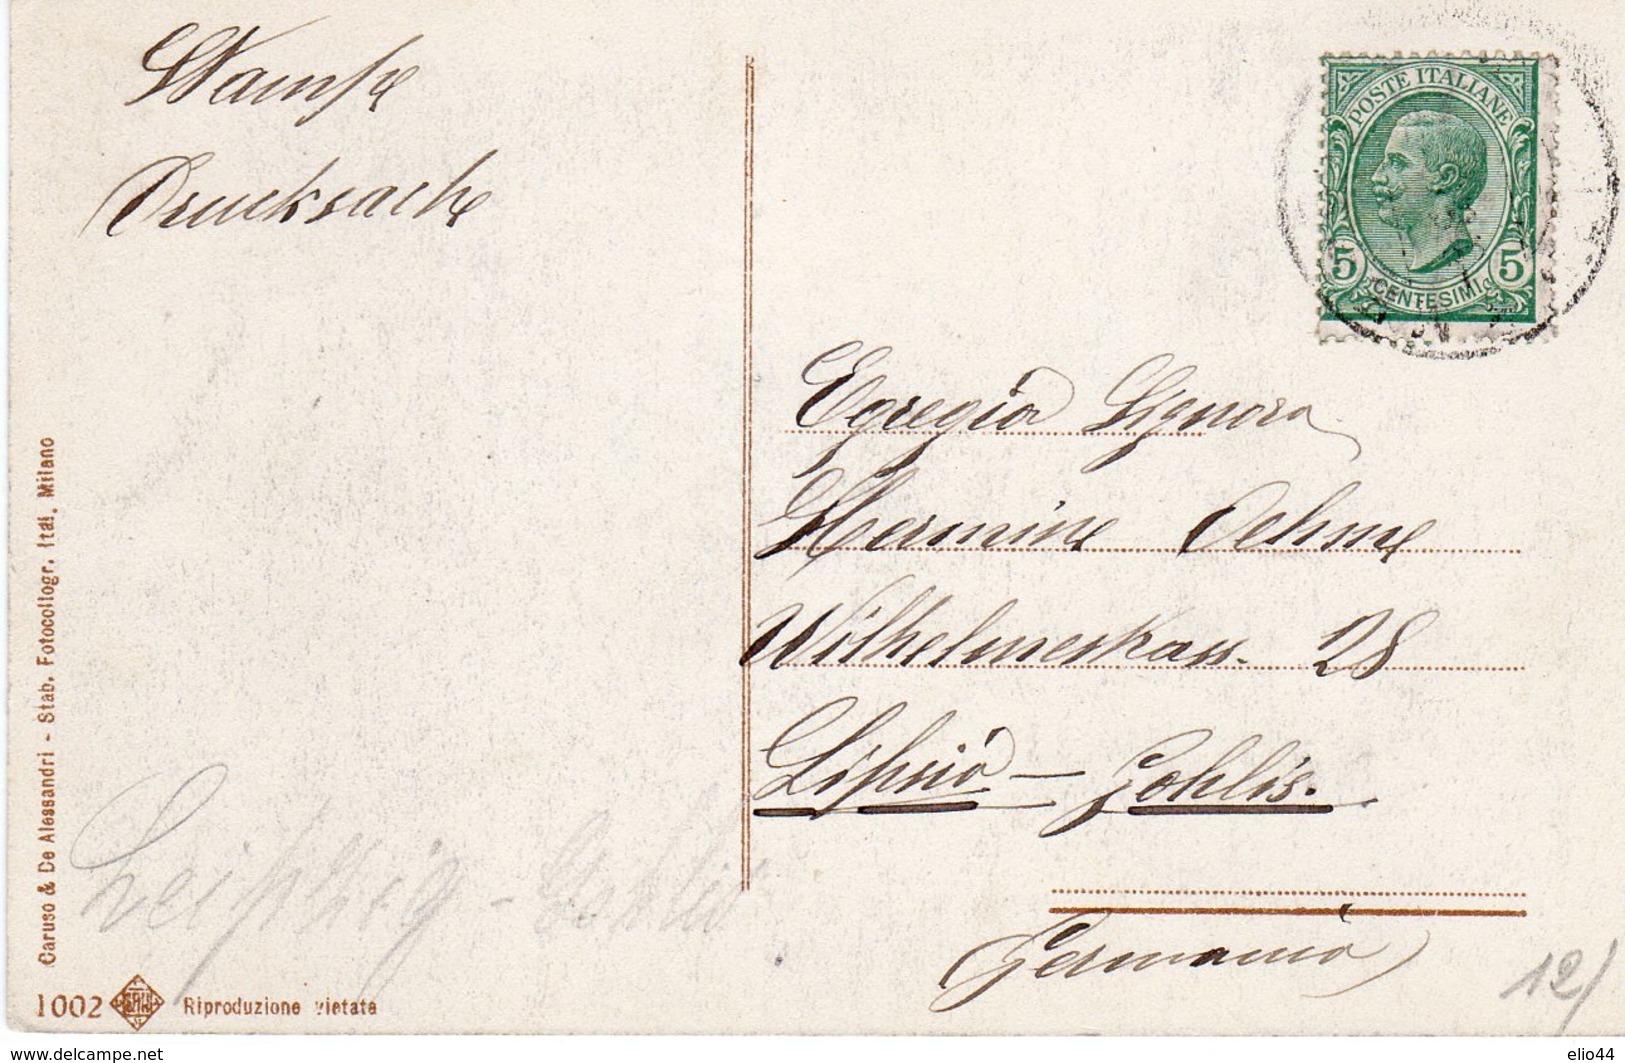 Stampe
Drucksache
POSTE ITALIANE
5 5
CENTESIMI
Egregia Signora
Hermine Oehme
Wilhelmestrass. 28
Lipsia - Gohlis.
Germania
Leipzig - Gohlis
12/
Caruso & De Alessandri - Stab. Fotocollogr. Ital. Milano
1002
Riproduzione vietata
www.delcampe.net
elio44